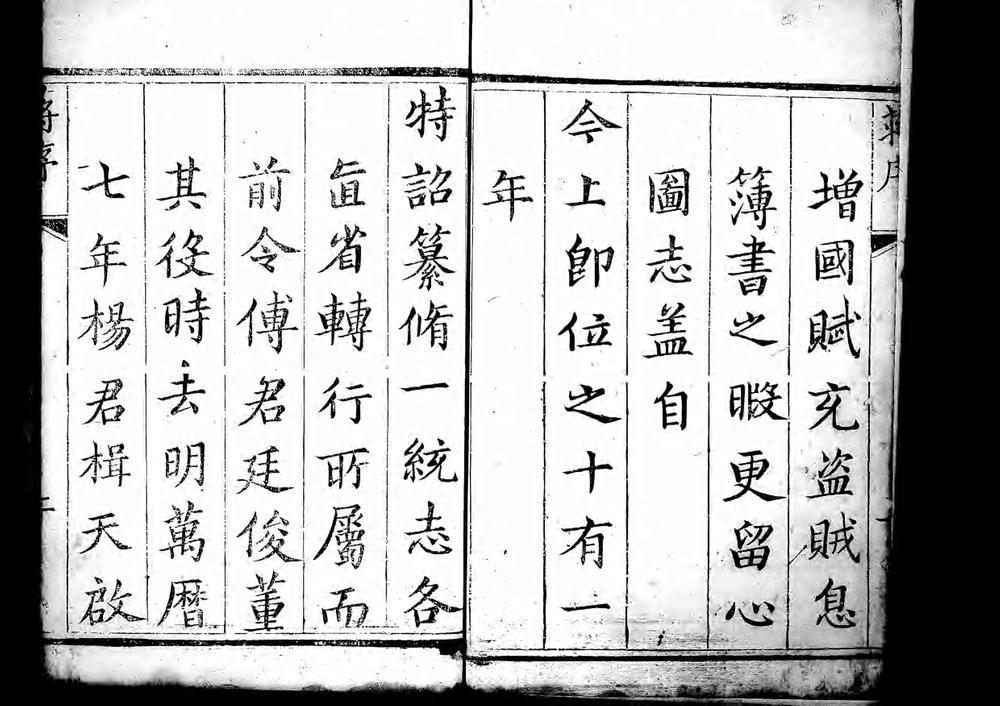 增國賦充盜賊息
簿書之暇更留心
圖志盖自
今上卽位之十有一
年
特詔纂脩一統志各
直省轉行所屬而
前令傅君廷俊董
其役時去明萬曆
七年楊君楫天啟